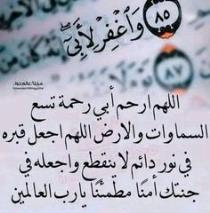 ٨٥ وَاغْفِرْ لِأَبِي
٨٧
اللهم ارحم أبي رحمة تسع
السماوات والارض اللهم اجعل قبره
في نور دائم لا ينقطع واجعله في
جنتك آمنًا مطمئنًا يارب العالمين